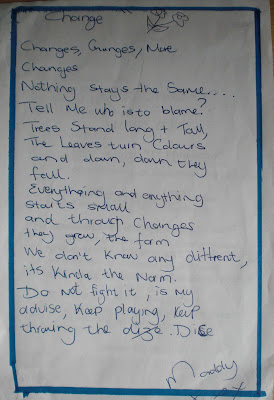 Change
Changes, Changes, More
Changes
Nothing stays the Same....
Tell Me who is to blame?
Trees Stand long + Tall,
The Leaves turn Colours
and down, down they
fall.
Everything and anything
starts small
and through Changes
they grow, the form
We don't know any diffrent,
its Kinda the Norm.
Do Not fight it, is My
advise, Keep playing, Keep
throwing the dize. Dice
Maddy